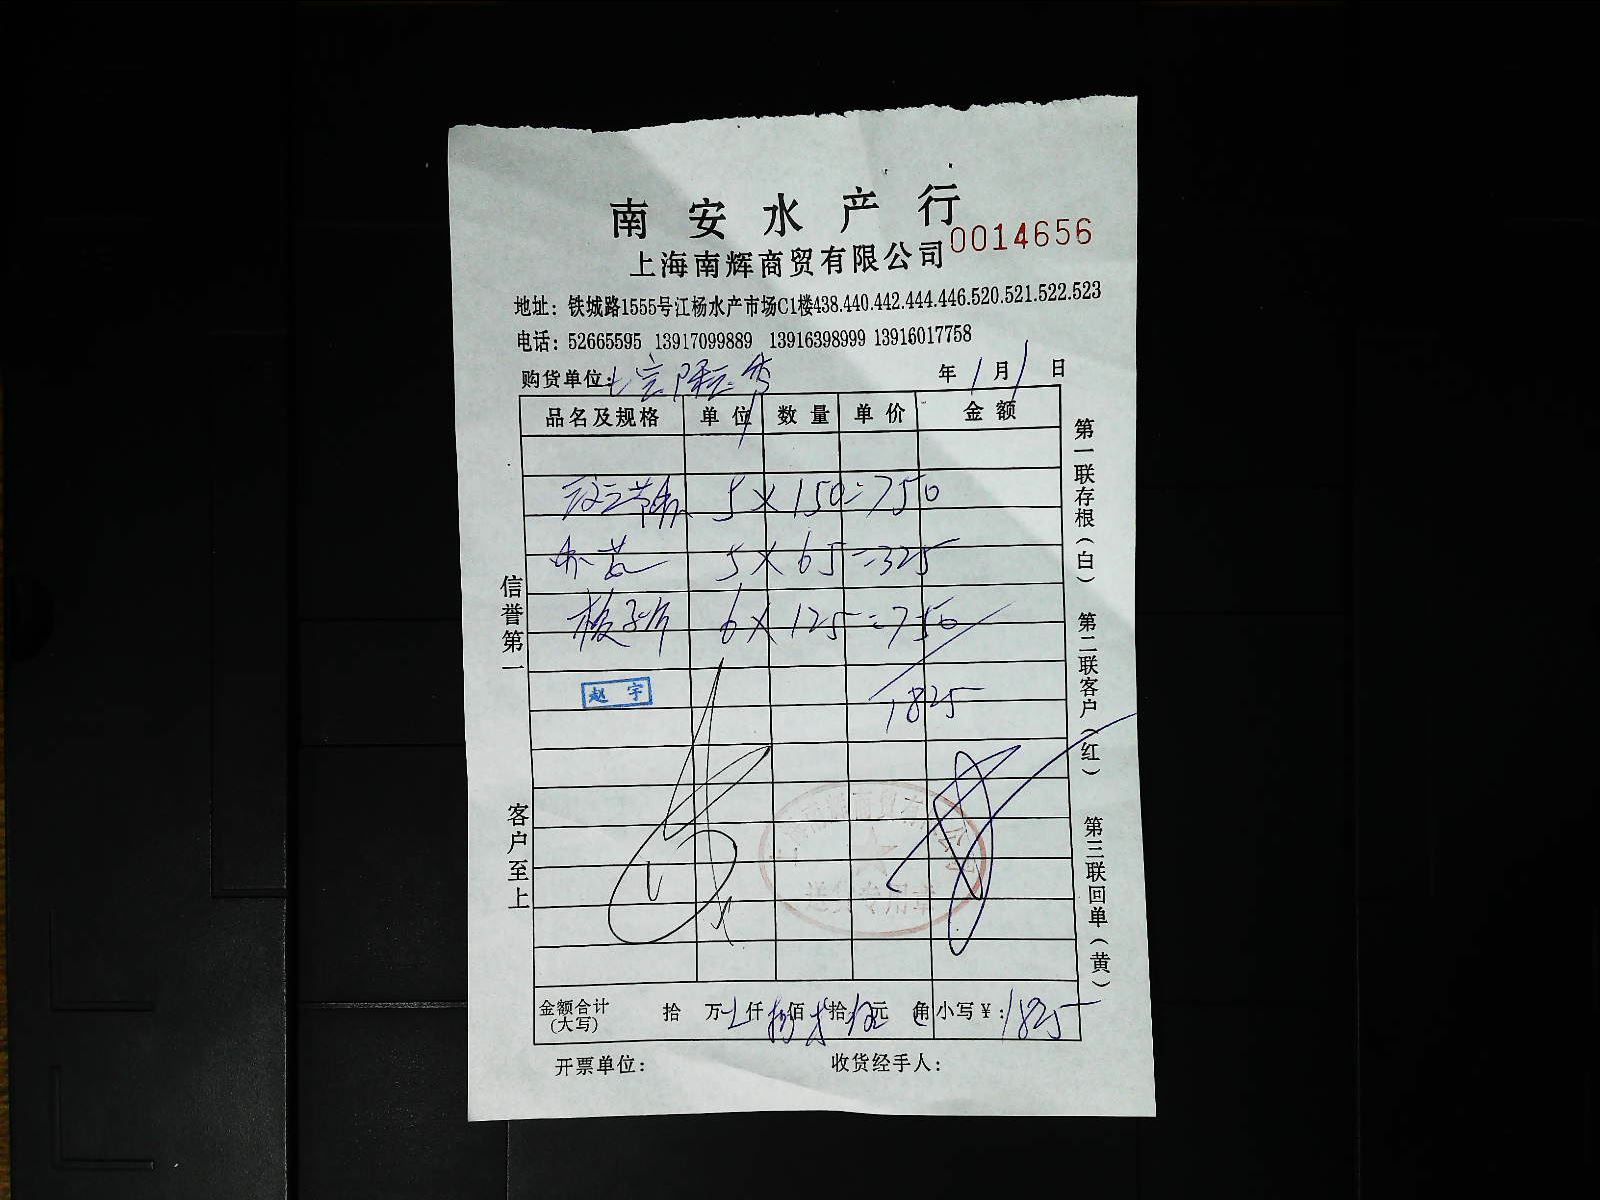 南安水产行
上海南辉商贸有限公司 0014656
地址：铁城路1555号江杨水产市场C1楼438.440.442.444.446.520.521.522.523
电话：52665595 13917099889 13916398999 13916017758
购货单位： 年 1 月 1 日
品名及规格 单位 数量 单价 金额
5 × 150 = 750
5 × 65 = 325
板子片 6 × 125 = 750
赵宇
1825
金额合计(大写) 拾 万 仟 佰 拾 元 角 小写￥：1825
开票单位： 收货经手人：
信誉第一
客户至上
第一联存根（白） 第二联客户（红） 第三联回单（黄）